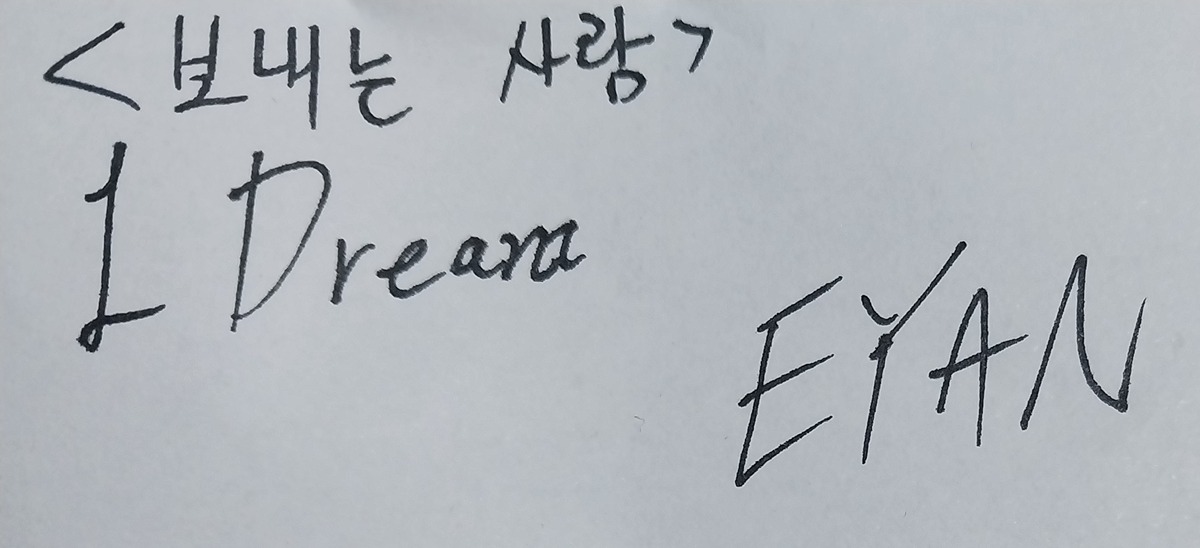 <보내는 사람>
I Dream
EYAN